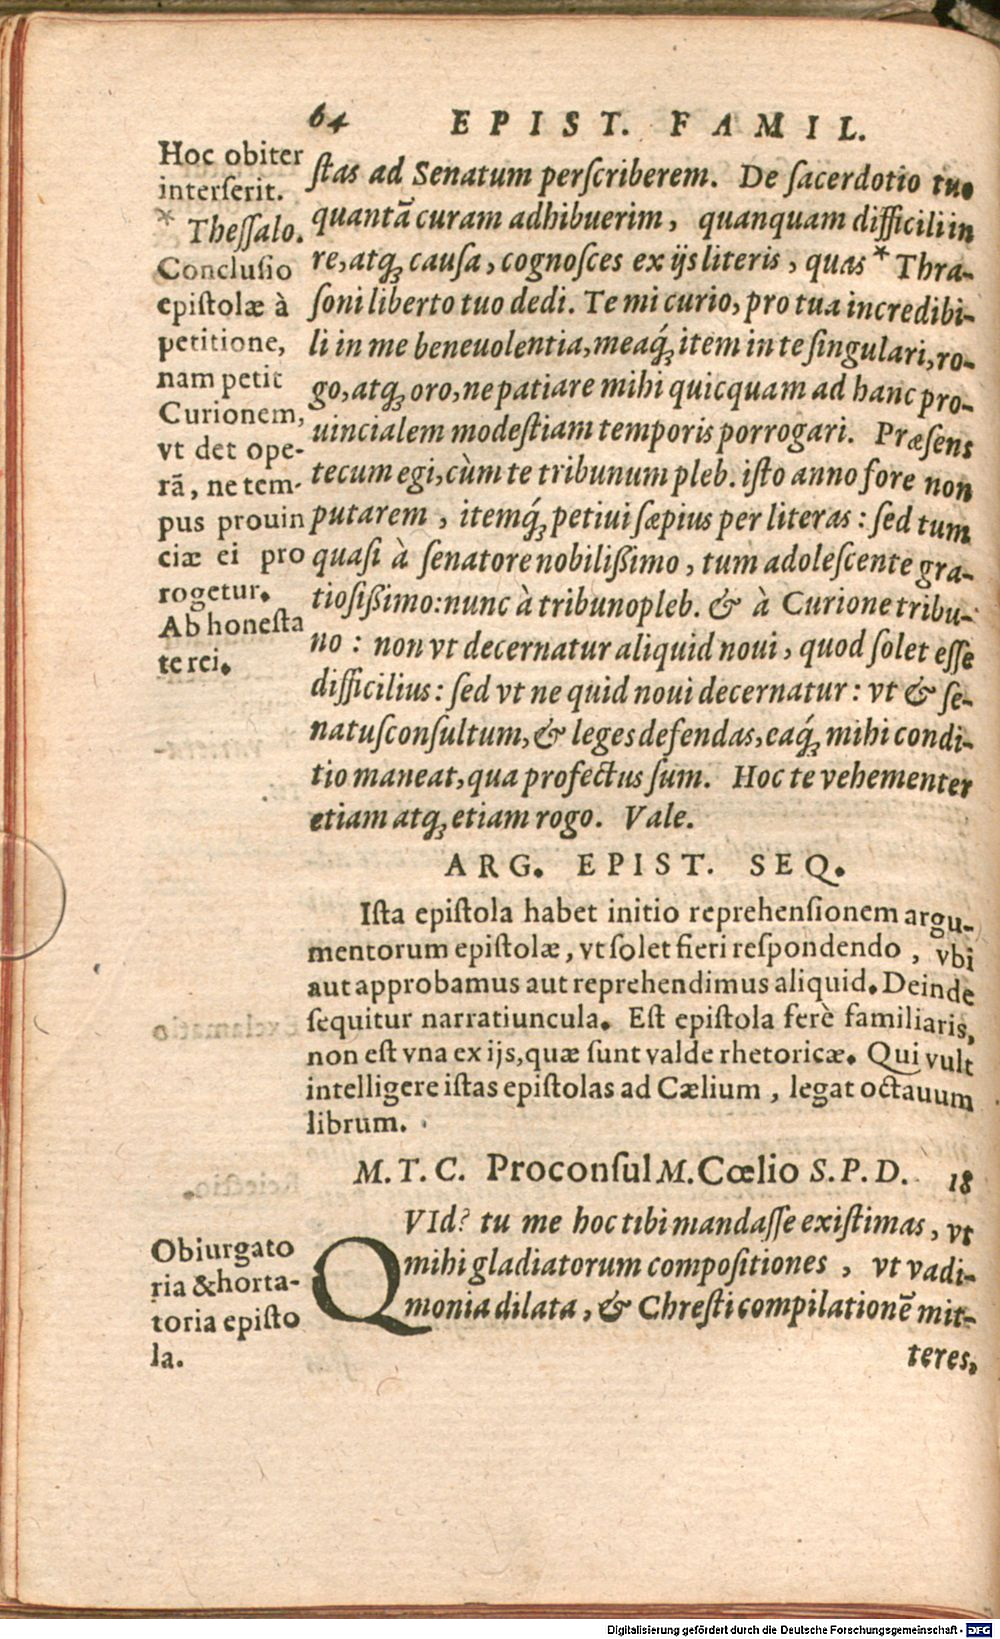 64 EPIST. FAMIL.
Hoc obiter
interſerit.
* Theſſalo.
Concluſio
epiſtolæ à
petitione,
nam petit
Curionem,
vt det ope-
rã, ne tem-
pus prouin
ciæ ei pro
rogetur.
Ab honeſta
te rei.
ſtas ad Senatum perſcriberem. De ſacerdotio tuo
quantã curam adhibuerim, quanquam difficili in
re, atq́; cauſa, cognoſces ex ijs literis, quas * Thra-
ſoni liberto tuo dedi. Te mi curio, pro tua incredibi-
li in me beneuolentia, meaq́; item in te ſingulari, ro-
go, atq; oro, ne patiare mihi quicquam ad hanc pro-
uincialem modeſtiam temporis porrogari. Præſens
tecum egi, cùm te tribunum pleb. iſto anno fore non
putarem, itemq́; petiui ſæpius per literas: ſed tum
quaſi à ſenatore nobiliſsimo, tum adoleſcente gra-
tioſiſsimo: nunc à tribuno pleb. & à Curione tribu-
no: non vt decernatur aliquid noui, quod ſolet eſſe
difficilius: ſed vt ne quid noui decernatur: vt & ſe-
natuſconſultum, & leges defendas, eaq́; mihi condi-
tio maneat, qua profectus ſum. Hoc te vehementer
etiam atq; etiam rogo. Vale.
ARG. EPIST. SEQ.
Iſta epiſtola habet initio reprehenſionem argu-
mentorum epiſtolæ, vt ſolet fieri reſpondendo, vbi
aut approbamus aut reprehendimus aliquid. Deinde
ſequitur narratiuncula. Eſt epiſtola ferè familiaris,
non eſt vna ex ijs, quæ ſunt valde rhetoricæ. Qui vult
intelligere iſtas epiſtolas ad Cælium, legat octauum
librum.
M. T. C. Proconſul M. Cœlio S. P. D. 18
Obiurgato
ria & horta-
toria epiſto
la.
QVId? tu me hoc tibi mandaſſe exiſtimas, vt
mihi gladiatorum compoſitiones, vt vadi-
monia dilata, & Chreſti compilationẽ mit-
teres,
Digitalisierung gefördert durch die Deutsche Forschungsgemeinschaft - DFG